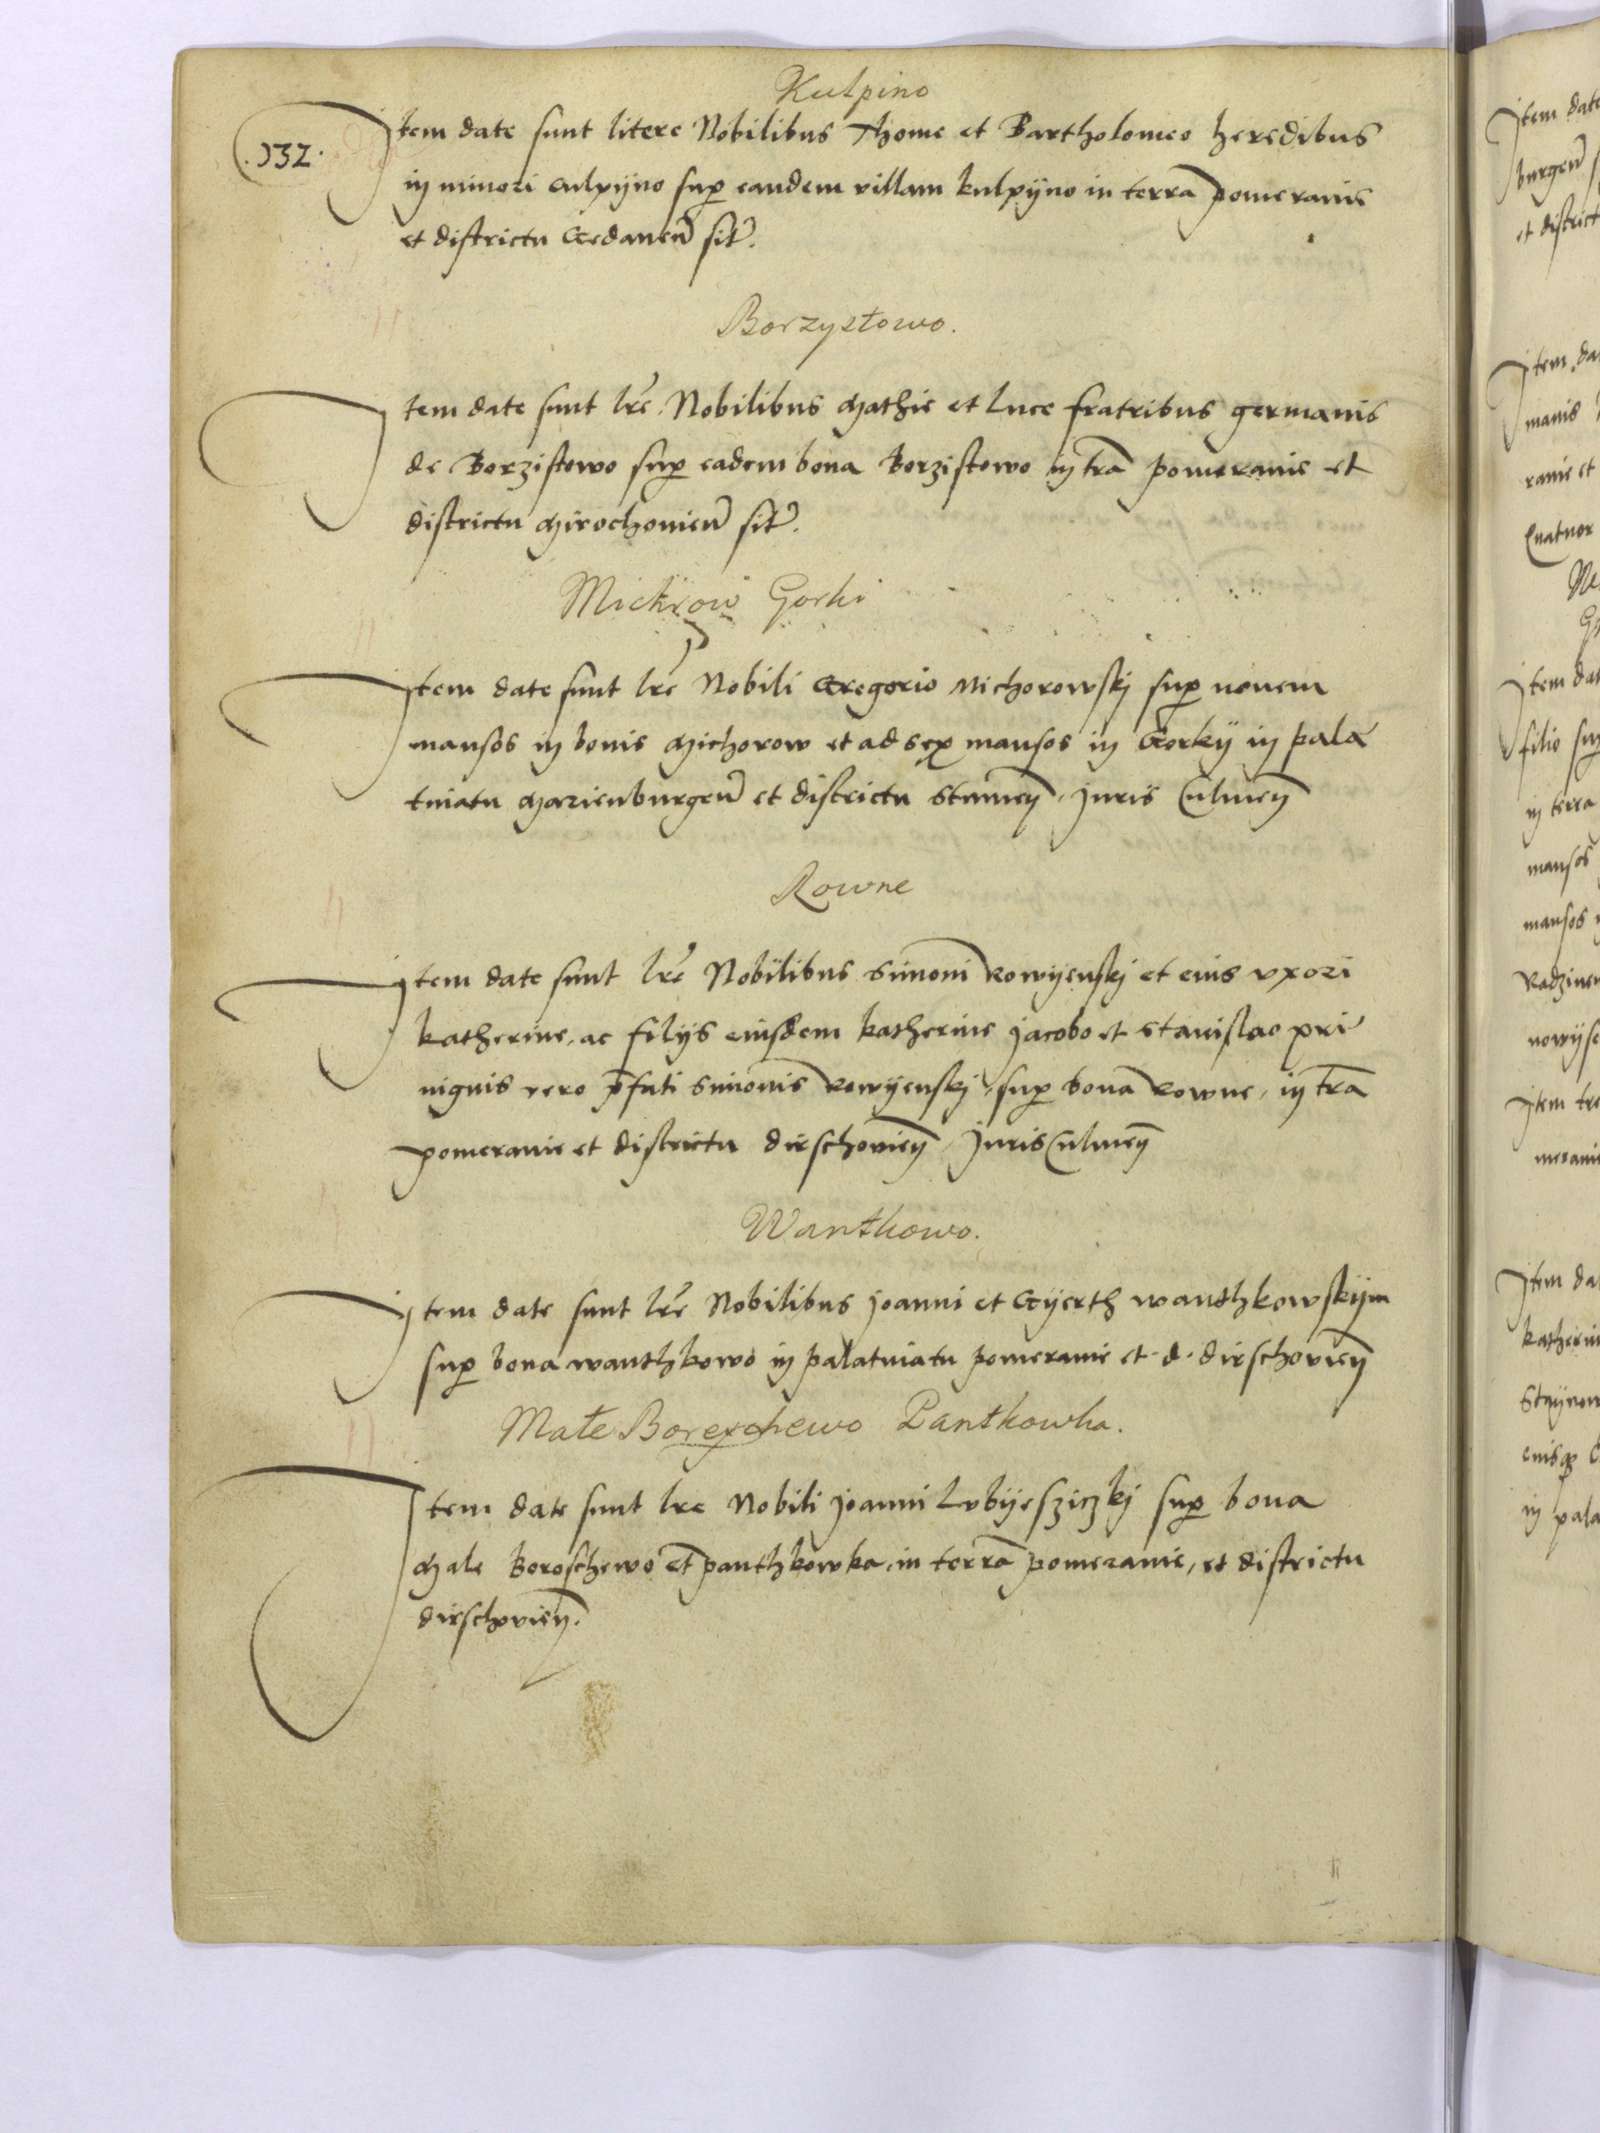 Kulpino
.132.
Item date sunt litere Nobilibus Thome et Bartholomeo heredibus
in minori culpÿno sup eandem villam kulpÿno in terra pomeranie
et districtu Gedaneñ sit.
Borzystowo.
Item date sunt lre Nobilibus Mathie et Luce fratribus germanis
de Borzistowo sup eadem bona Borzistowo in tra pomeranie et
districtu Mirochovieñ sit.
Mickrow Gorki
Item date sunt lre Nobili Gregorio Michorowskj sup novem
mansos in bonis Michorow et ad sex mansos in Gorkÿ in pala
tinatu Marienburgeñ et districtu Stumeñ Juris Culmeñ
Rowne
Item date sunt lre Nobilibus Simoni Rowÿenskj et eius uxori
katherine, ac filÿs eiusdem katherine Jacobo et Stanislao pri
vignis vero pfati Simonis Rowÿenskj, sup bona Rowne, in tra
pomeranie et districtu dirschovieñ, Juris Culmeñ
Wantkowo.
Item date sunt lre Nobilibus Joanni et Gÿerth wanthkowskÿm
sup bona wanthkowo in palatinatu pomeranie et .d. dirschovieñ
Małe Boreschewo Pantkowka.
Item date sunt lre Nobili Joanni Lubÿesziczkj sup bona
Male Boroschewo et panthkowka, in terra pomeranie, et districtu
dirschovieñ.
Item date
burgeñ
et district
manis
ranie et
Quatuor
Item dat
filio sup
in terra
mansos
mansos
Item tre
Item dat
katherin
in pala